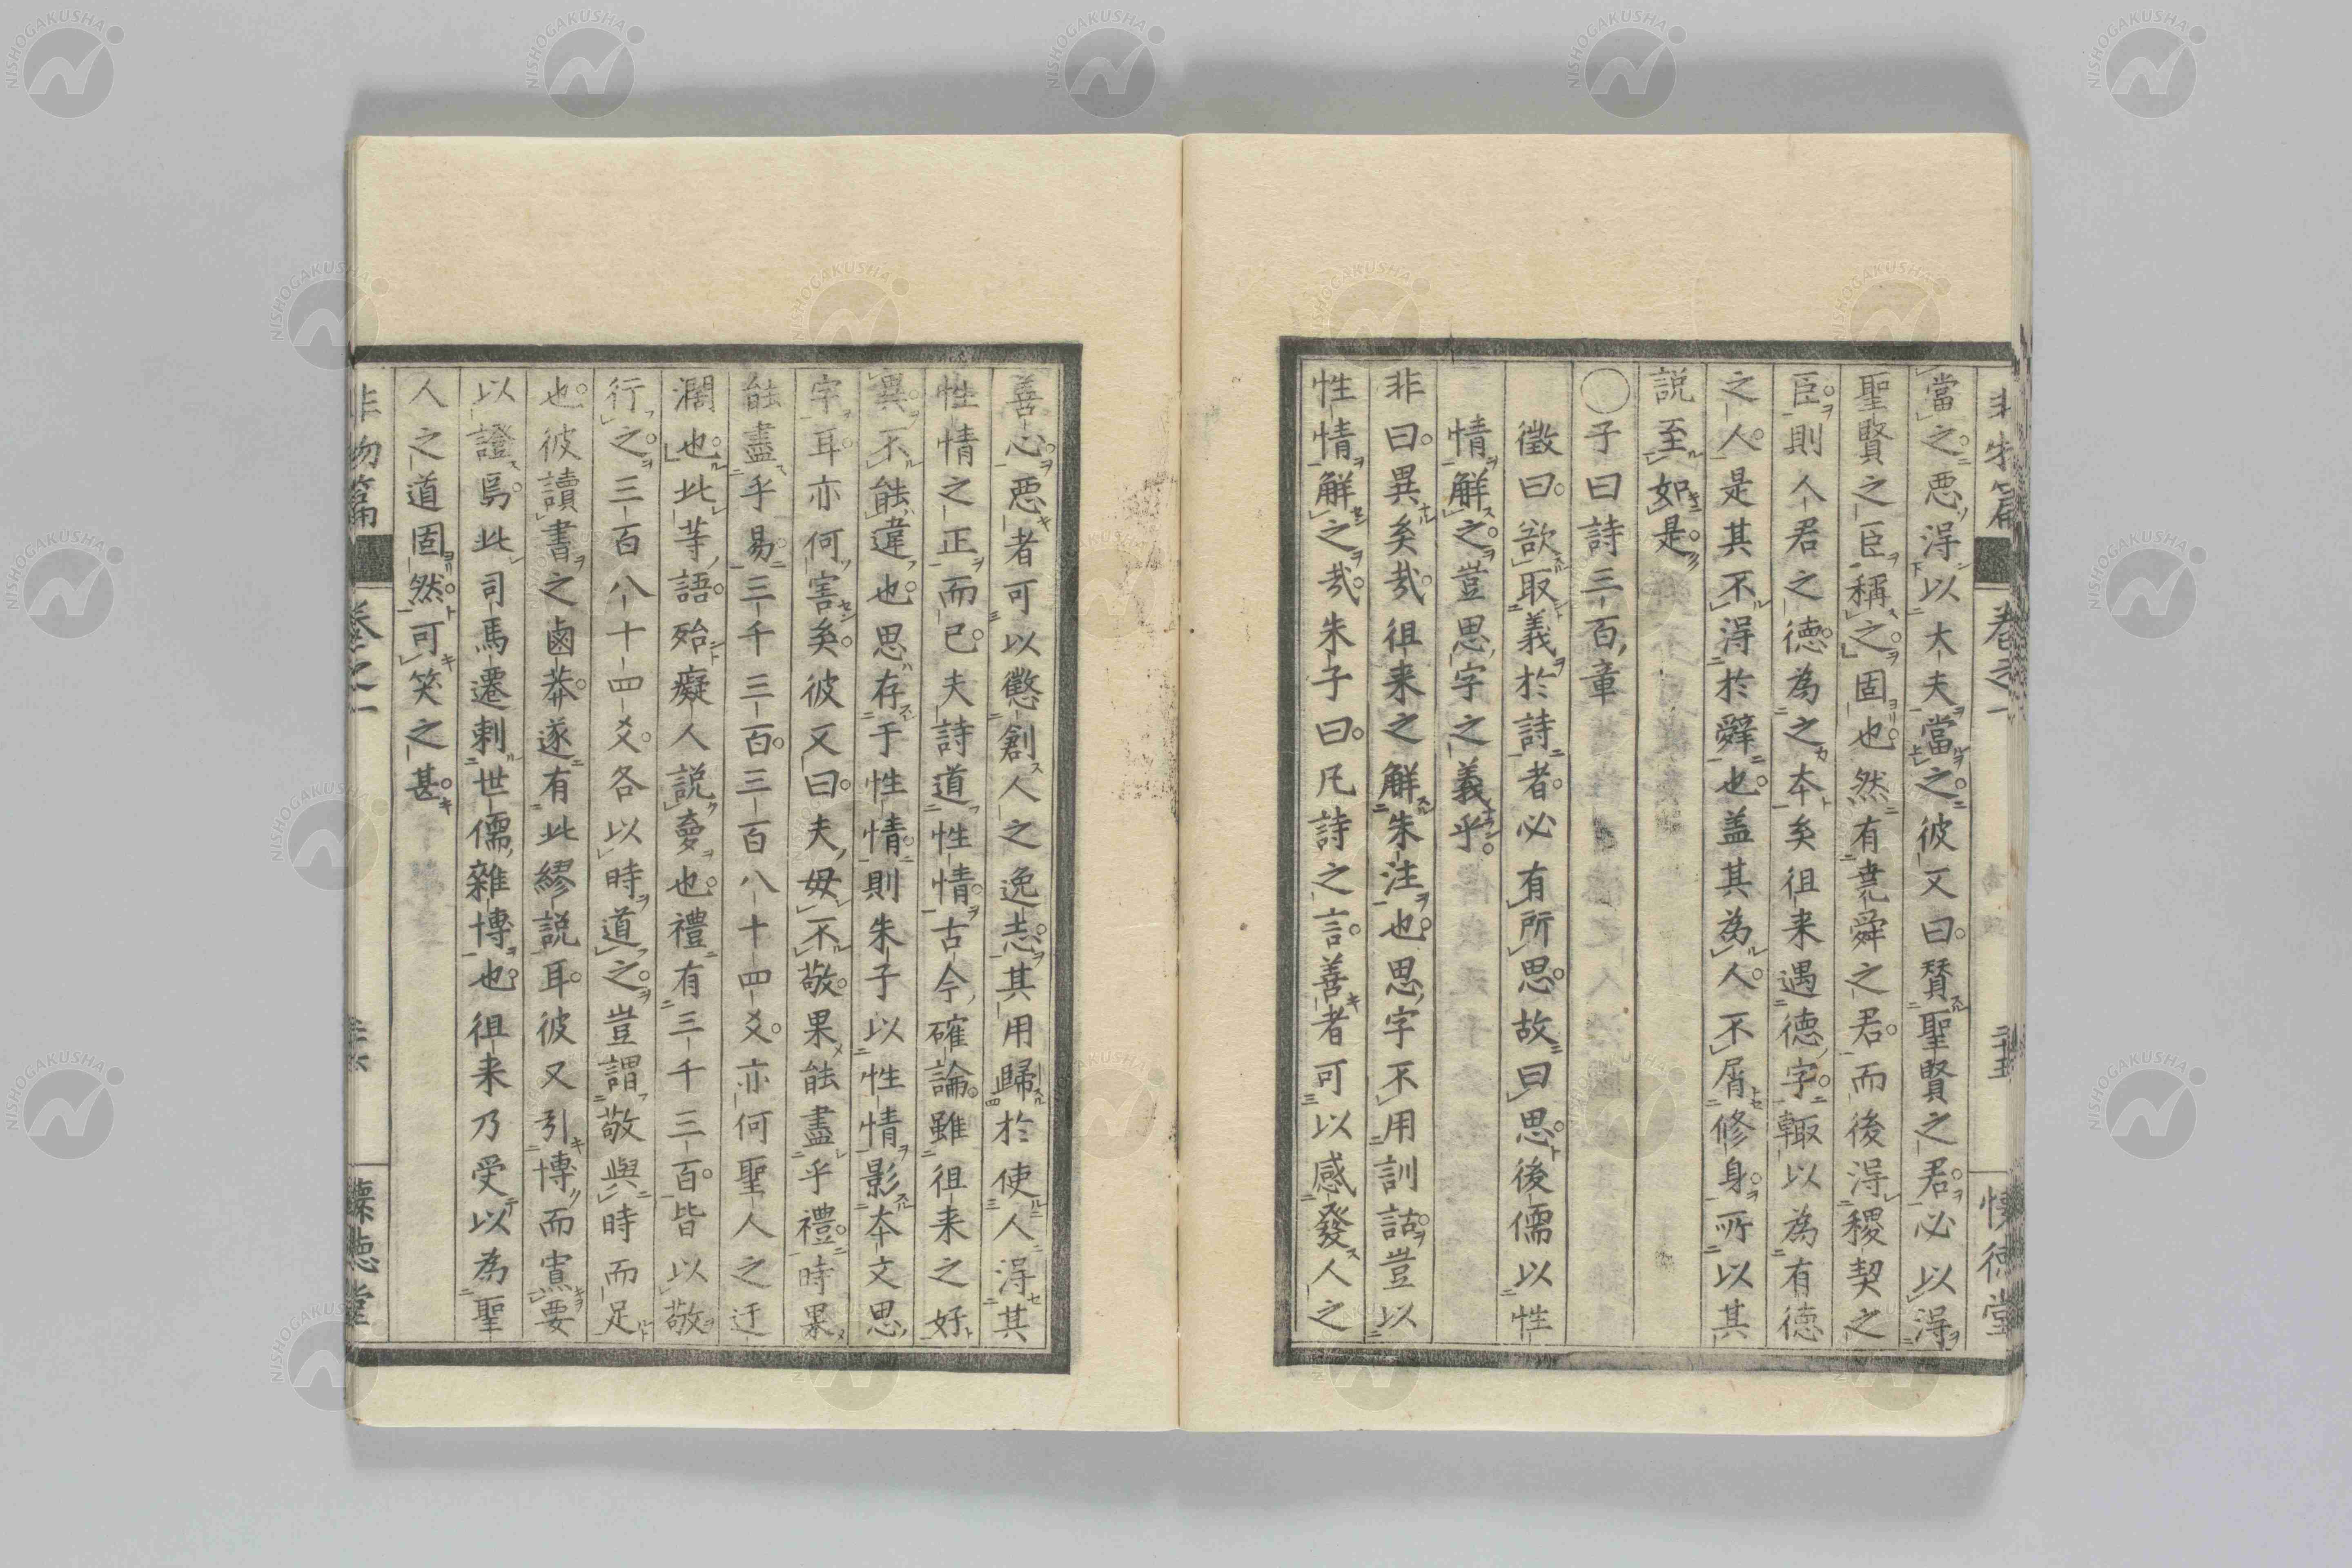 當之悪得以大夫當之彼又曰賛聖賢之君必以得
聖賢之臣稱之固也然有堯舜之君而後得稷契之
臣則人君之德為之本矣徂来遇德字輙以為有德
之人是其不得於辭也盖其為人不屑修身所以其
説至如是
○子曰詩三百章
徵曰欲取義於詩者必有所思故曰思後儒以性
情解之豈思字之義乎
非曰異矣哉徂来之解朱注也思字不用訓詁豈以
性情解之哉朱子曰凡詩之言善者可以感發人之
善心悪者可以懲創人之逸志其用歸於使人得其
性情之正而已夫詩道性情古今確論雖徂来之好
異不能違也思存于性情則朱子以性情影本文思
字耳亦何害矣彼又曰夫毋不敬果能盡乎禮時果
能盡乎易三千三百三百八十四爻亦何聖人之迂
濶也此等語殆癡人説夢也禮有三千三百皆以敬
行之三百八十四爻各以時道之豈謂敬與時而足
也彼讀書之鹵莽遂有此繆説耳彼又引博而寡要
以證焉此司馬遷刺世儒雜博也徂来乃受以為聖
人之道固然可笑之甚
非物篇
卷之一
懐德堂
NISHOGAKUSHA